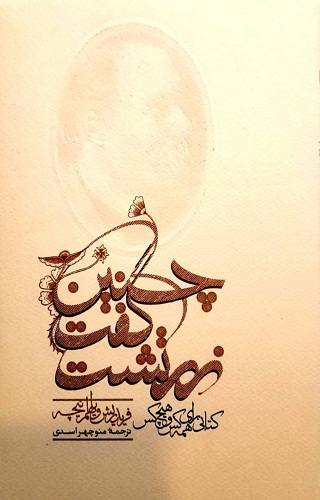 چنین
گفت
زرتشت
کتابی برای همه کس و هیچ‌کس
فریدریش ویلهلم نیچه
ترجمهٔ منوچهر اسدی